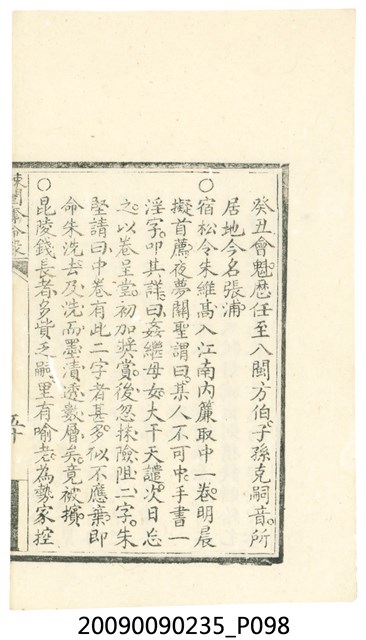 癸丑會魁歷任至八閩方伯子孫克嗣音所
居地今名張浦
○宿松令朱維高入江南內簾取中一卷明晨
擬首薦夜夢關聖謂曰某人不可中手書一
淫字叩其詳曰姦繼母女大干天譴次日忘
之以卷呈堂初加奬賞後忽抹險阻二字朱
堅請曰中卷有此二字者甚多似不應棄即
命朱洗去及洗而墨漬透數層矣竟被擯
○昆陵錢長者多貲乏嗣里有喻老為勢家控
五十
20090090235_P098